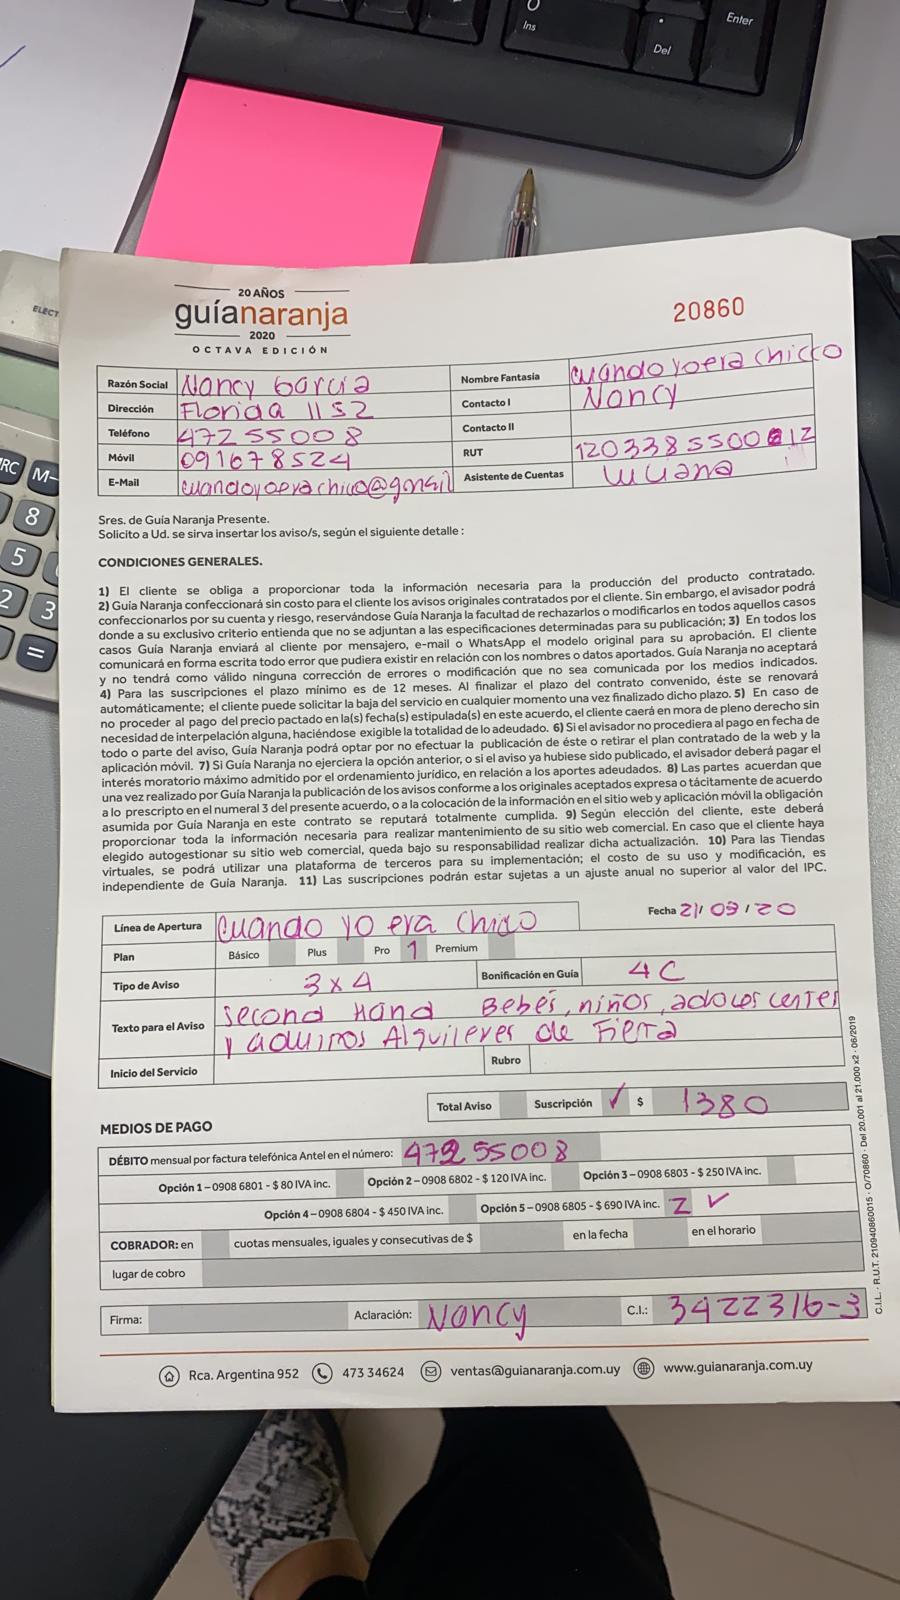 Ins
Enter
Del
ELECT
RC
M-
8
5
2
3
=
20 AÑOS
guíanaranja
2020
OCTAVA EDICIÓN
20860
Razón Social Nancy Garcia
Nombre Fantasia cuando yo era chicco
Dirección Florida 1152
Contacto I Nancy
Teléfono 472 55008
Contacto II
Móvil 091678524
RUT 120338550012
E-Mail cuandoyoerachico@gmail
Asistente de Cuentas Luciana
Sres. de Guía Naranja Presente.
Solicito a Ud. se sirva insertar los aviso/s, según el siguiente detalle :
CONDICIONES GENERALES.
1) El cliente se obliga a proporcionar toda la información necesaria para la producción del producto contratado.
2) Guía Naranja confeccionará sin costo para el cliente los avisos originales contratados por el cliente. Sin embargo, el avisador podrá
confeccionarlos por su cuenta y riesgo, reservándose Guía Naranja la facultad de rechazarlos o modificarlos en todos aquellos casos
donde a su exclusivo criterio entienda que no se adjuntan a las especificaciones determinadas para su publicación; 3) En todos los
casos Guía Naranja enviará al cliente por mensajero, e-mail o WhatsApp el modelo original para su aprobación. El cliente
comunicará en forma escrita todo error que pudiera existir en relación con los nombres o datos aportados. Guía Naranja no aceptará
y no tendrá como válido ninguna corrección de errores o modificación que no sea comunicada por los medios indicados.
4) Para las suscripciones el plazo mínimo es de 12 meses. Al finalizar el plazo del contrato convenido, éste se renovará
automáticamente; el cliente puede solicitar la baja del servicio en cualquier momento una vez finalizado dicho plazo. 5) En caso de
no proceder al pago del precio pactado en la(s) fecha(s) estipulada(s) en este acuerdo, el cliente caerá en mora de pleno derecho sin
necesidad de interpelación alguna, haciéndose exigible la totalidad de lo adeudado. 6) Si el avisador no procediera al pago en fecha de
todo o parte del aviso, Guía Naranja podrá optar por no efectuar la publicación de éste o retirar el plan contratado de la web y la
aplicación móvil. 7) Si Guía Naranja no ejerciera la opción anterior, o si el aviso ya hubiese sido publicado, el avisador deberá pagar el
interés moratorio máximo admitido por el ordenamiento jurídico, en relación a los aportes adeudados. 8) Las partes acuerdan que
una vez realizado por Guía Naranja la publicación de los avisos conforme a los originales aceptados expresa o tácitamente de acuerdo
a lo prescripto en el numeral 3 del presente acuerdo, o a la colocación de la información en el sitio web y aplicación móvil la obligación
asumida por Guía Naranja en este contrato se reputará totalmente cumplida. 9) Según elección del cliente, este deberá
proporcionar toda la información necesaria para realizar mantenimiento de su sitio web comercial. En caso que el cliente haya
elegido autogestionar su sitio web comercial, queda bajo su responsabilidad realizar dicha actualización. 10) Para las Tiendas
virtuales, se podrá utilizar una plataforma de terceros para su implementación; el costo de su uso y modificación, es
independiente de Guía Naranja. 11) Las suscripciones podrán estar sujetas a un ajuste anual no superior al valor del IPC.
Línea de Apertura Cuando yo era chico
Fecha 21/09/20
Plan Básico Plus Pro 1 Premium
Tipo de Aviso 3x4
Bonificación en Guía 4C
Texto para el Aviso Second Hand Bebés, niños, adolescentes
y adultos Alquileres de Fiesta
Inicio del Servicio
Rubro
Total Aviso Suscripción ✓ $ 1380
MEDIOS DE PAGO
DÉBITO mensual por factura telefónica Antel en el número: 472 55008
Opción 1 – 0908 6801 - $ 80 IVA inc. Opción 2 – 0908 6802 - $ 120 IVA inc. Opción 3 – 0908 6803 - $ 250 IVA inc.
Opción 4 – 0908 6804 - $ 450 IVA inc. Opción 5 – 0908 6805 - $ 690 IVA inc. 2 ✓
COBRADOR: en cuotas mensuales, iguales y consecutivas de $ en la fecha en el horario
lugar de cobro
Firma: Aclaración: Nancy C.I.: 3422316-3
C.I.L. · R.U.T. 210940860015 · O/70860 · Del 20.001 al 21.000 x2 · 06/2019
Rca. Argentina 952 473 34624 ventas@guianaranja.com.uy www.guianaranja.com.uy